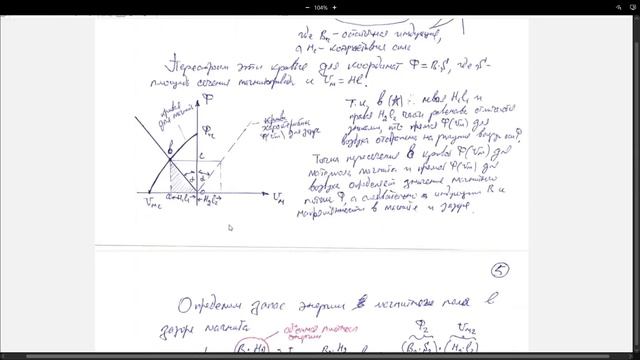 104%
где Br - остаточная индукция,
а Hc - коэрцитивная сила
Перестроим эти кривые для координат Φ = B·S, где S-
площадь сечения магнитопровода и Uм = Hl.
Φ
кривая
для магнита
Φr
кривая
характеристики
Φ(Uм) для зазора
B
C
Uмc
H₂l₂
Uм
Т.к. в (*) левая H₁l₁ и
правая H₂l₂ части равенства отличаются
Φ(Uм) для
воздуха отображена на рисунке
Точка пересечения B кривой Φ(Uм) для
материала магнита и прямой Φ(Uм) для
воздуха определяет значения магнитного
потока Φ, а следовательно и индукции B и
напряженности в магните и зазоре.
5
Определим запас энергии в магнитном поле в
зазоре магнита
объемная плотность
энергии
Φ₂
Uм₂
(B₂·S₂)·(H₂·l₂)